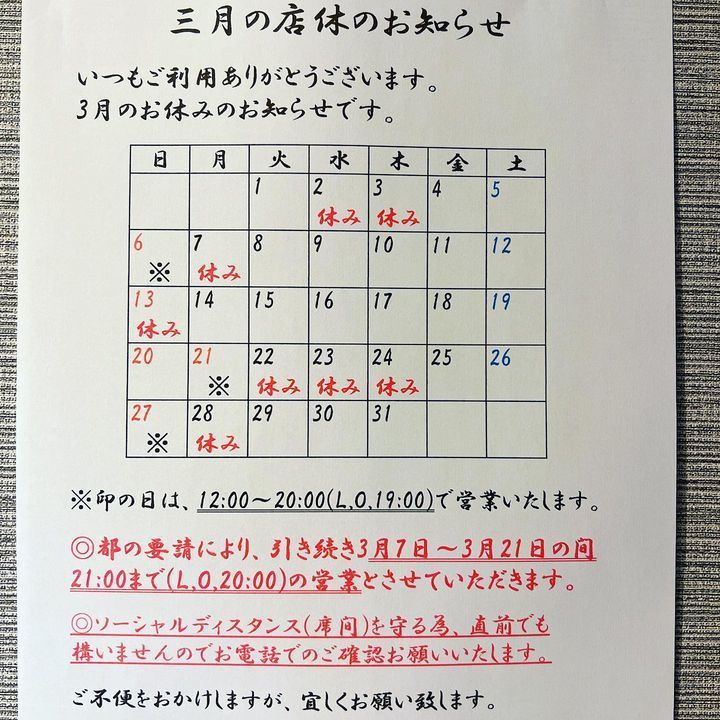 三月の店休のお知らせ
いつもご利用ありがとうございます。
3月のお休みのお知らせです。
日 月 火 水 木 金 土
1 2 3 4 5
休み 休み
6 7 8 9 10 11 12
※ 休み
13 14 15 16 17 18 19
休み
20 21 22 23 24 25 26
※ 休み 休み 休み
27 28 29 30 31
※ 休み
※印の日は、12:00～20:00(L,O,19:00)で営業いたします。
◎都の要請により、引き続き3月7日～3月21日の間
21:00まで(L,O,20:00)の営業とさせていただきます。
◎ソーシャルディスタンス(席間)を守る為、直前でも
構いませんのでお電話でのご確認お願いいたします。
ご不便をおかけしますが、宜しくお願い致します。